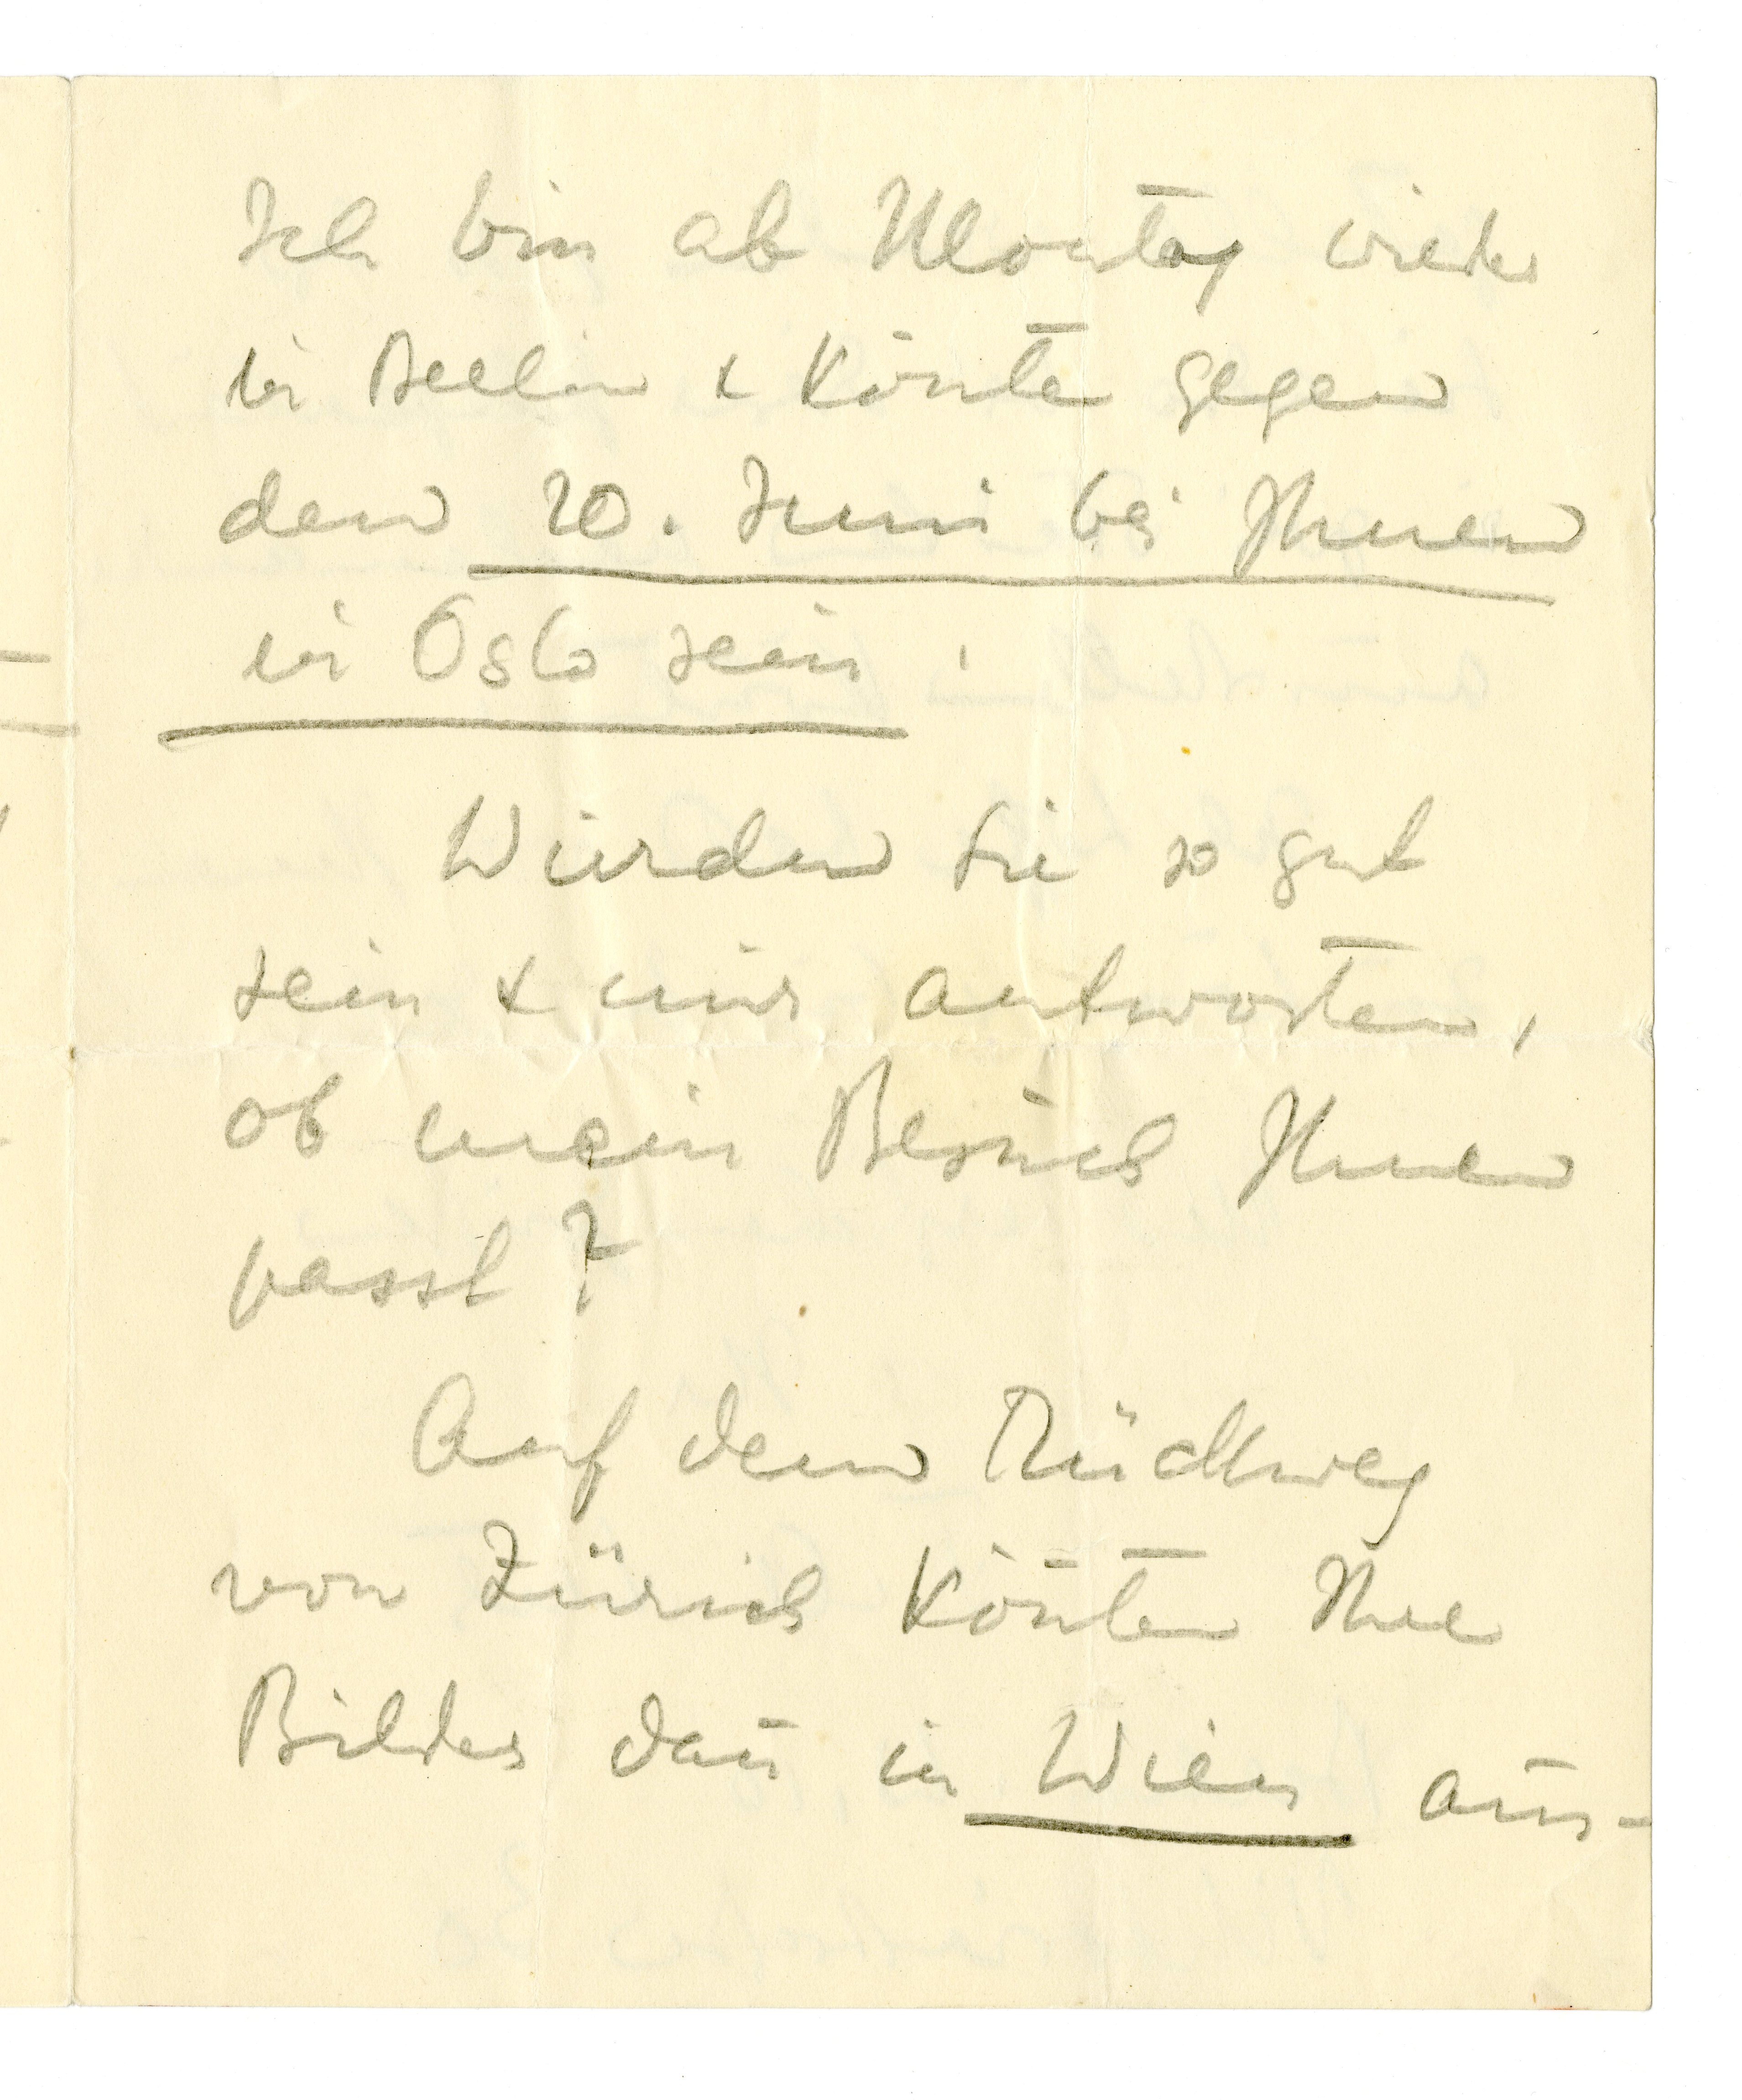 Ich bin ab Montag wieder
in Berlin & kön̄te gegen
den 20. Juni bei Ihnen
in Oslo sein.
Würden Sie so gut
sein & mir antworten,
ob mein Besuch Ihnen
passt?
Auf dem Rückweg
von Zürich kön̄ten Ihre
Bilder dan̄ in Wien aus-